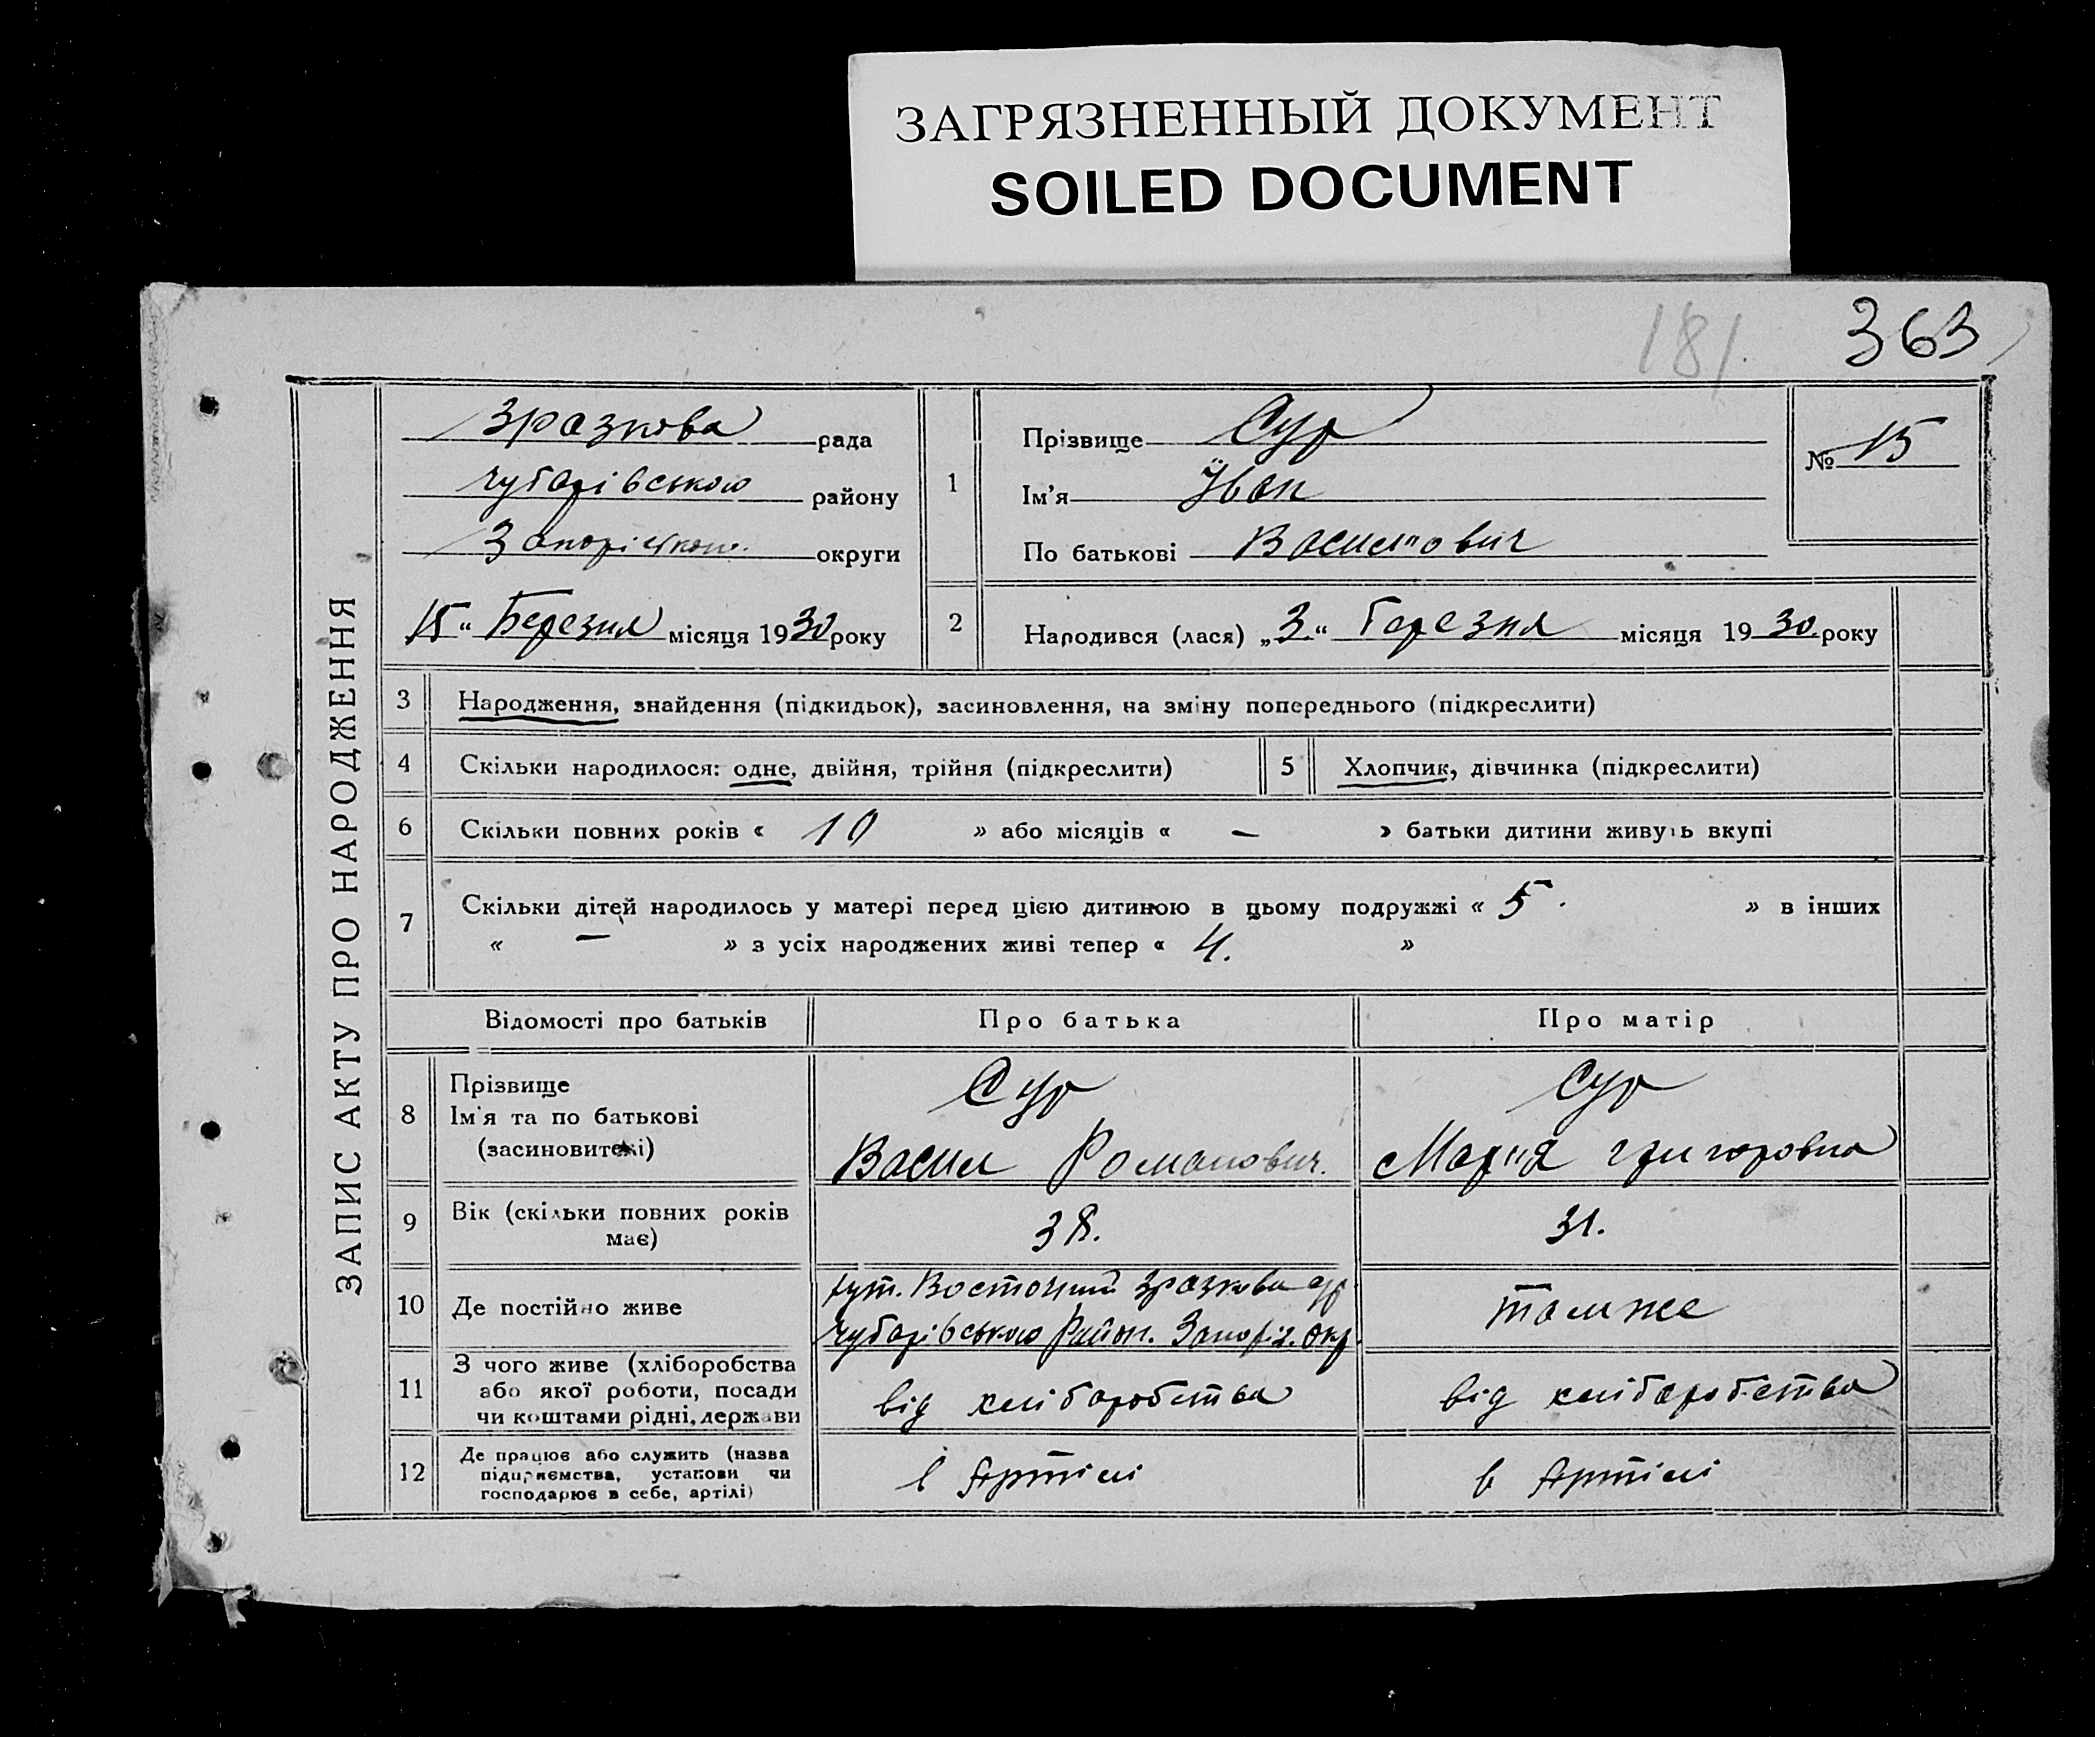 ЗАГРЯЗНЕННЫЙ ДОКУМЕНТ
SOILED DOCUMENT
181.
363
ЗАПИС АКТУ ПРО НАРОДЖЕННЯ
Зразкова рада
Чубарівського району
округи
15 " Березня місяця 1930 року
1
Прізвище Сур
Ім'я Іван
По батькові Василович
№ 15
2
Народився (лася) „3" Березня місяця 1930 року
3 Народження, знайдення (підкидьок), засиновлення, на зміну попереднього (підкреслити)
4 Скільки народилося: одне, двійня, трійня (підкреслити)
5 Хлопчик, дівчинка (підкреслити)
6 Скільки повних років « 10 » або місяців « — » батьки дитини живуть вкупі
7 Скільки дітей народилось у матері перед цією дитиною в цьому подружжі « 5. » в інших
« — » з усіх народжених живі тепер « 4. »
Відомості про батьків Про батька Про матір
8 Прізвище
Ім'я та по батькові
(засиновителі)
Сур
Васил Романович.
Сур
Мария Григоровна
9 Вік (скільки повних років
має)
38.
31.
10 Де постійно живе
хут. Восточний Зразкова с/р
Чубарівського Район. Запоріз. Окр.
там же
11 З чого живе (хліборобства
або якої роботи, посади
чи коштами рідні, держави
від хліборобства
від хліборобства
12 Де працює або служить (назва
підприємства, установи чи
господарює в себе, артілі)
в Артілі
в Артілі